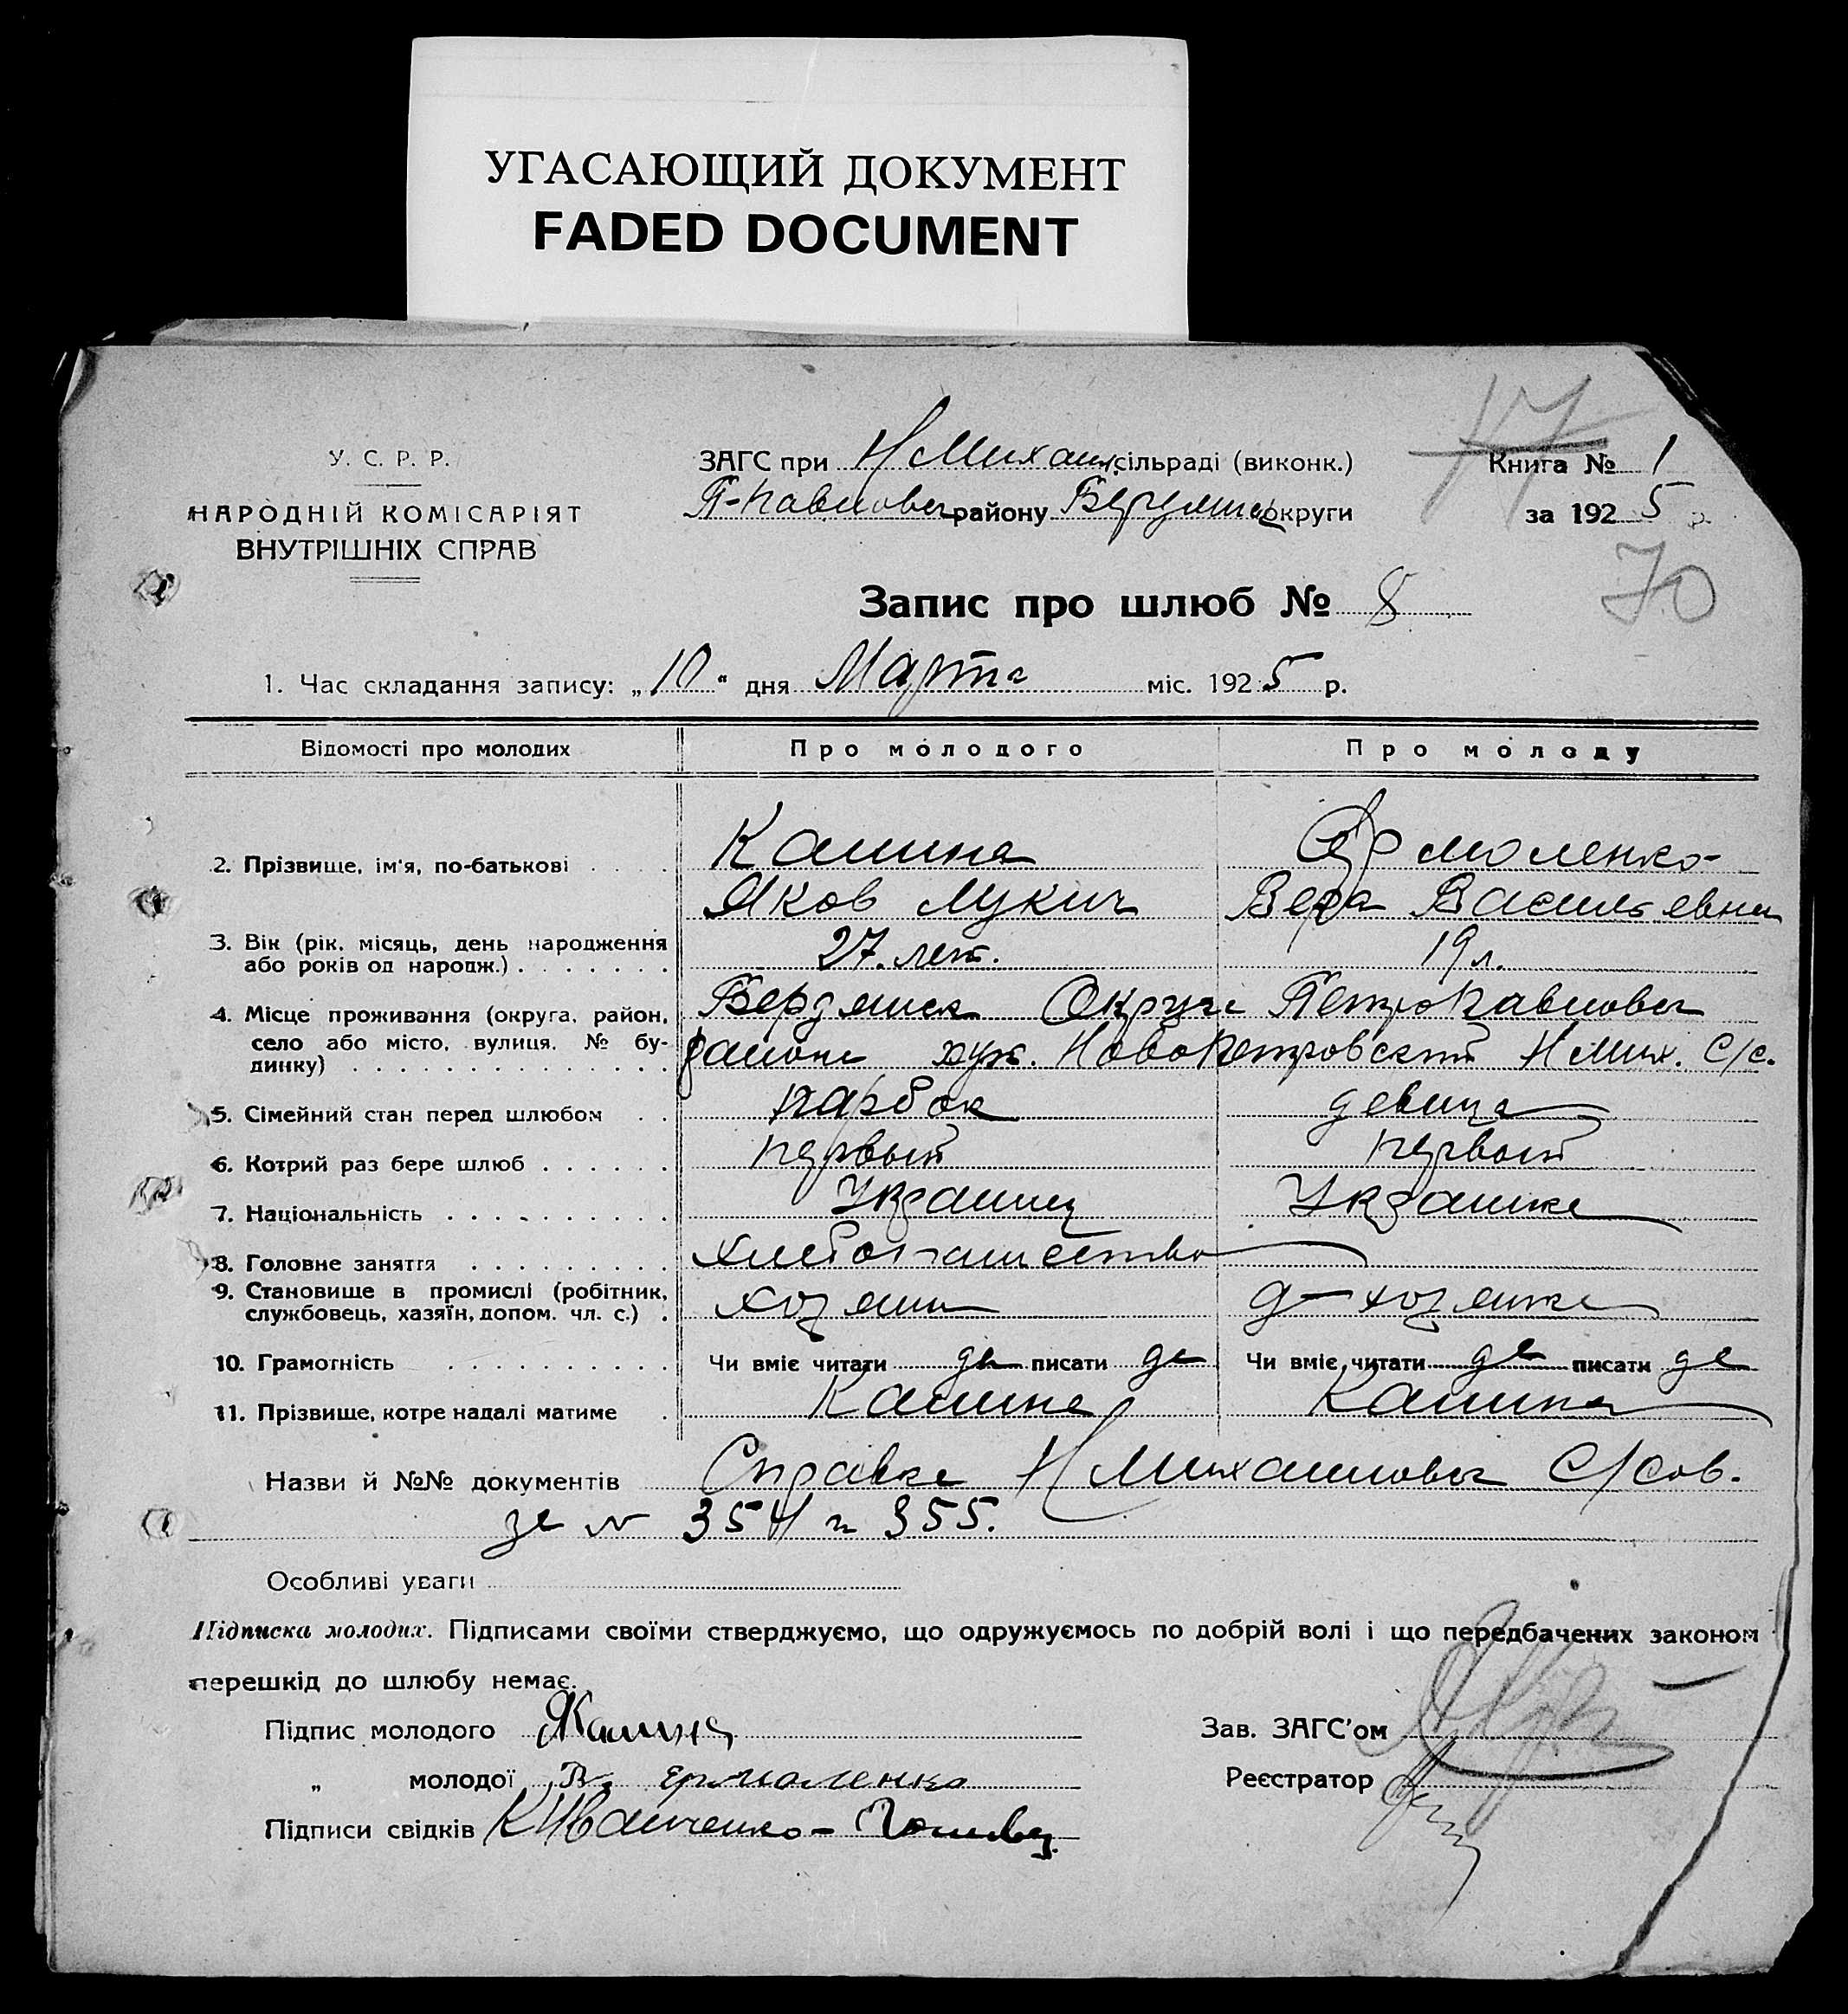 УГАСАЮЩИЙ ДОКУМЕНТ
FADED DOCUMENT
17
У. С. Р. Р.
НАРОДНІЙ КОМІСАРІЯТ
ВНУТРІШНІХ СПРАВ
ЗАГС при Н Михайл. сільраді (виконк.)
П-Павловск району Бердянск округи
Книга № 1
за 1925 р.
70
Запис про шлюб № 8
1. Час складання запису: „10“ дня Марта міс. 1925 р.
Відомості про молодих Про молодого Про молоду
2. Прізвище, ім'я, по-батькові . . . . Калина Ярмоленко
Яков Лукич Вера Васильевна
3. Вік (рік. місяць, день народження 27. лет. 19 л.
або років од народж.) . . . . . . .
4. Місце проживання (округа, район, Бердянск Округа Петропавловск
село або місто, вулиця, № бу- района хут. Новопетровский Н Мих. С/с.
динку) . . . . . . . . . . . . . .
5. Сімейний стан перед шлюбом . . парубок девица
6. Котрий раз бере шлюб . . . . . . первый первый
7. Національність . . . . . . . . . . Украинец Украинка
8. Головне заняття . . . . . . . . . хлебопашество
9. Становище в промислі (робітник, хозяин д-хозяйка
службовець, хазяїн, допом. чл. с.) .
10. Грамотність . . . . . . . . . . Чи вміє читати да писати да Чи вміє читати да писати да
11. Прізвище, котре надалі матиме . Калина Калина
Назви й №№ документів Справка Н Михайловск С/сов.
за № 354 и 355.
Особливі уваги
Підписка молодих. Підписами своїми стверджуємо, що одружуємось по добрій волі і що передбачених законом
перешкід до шлюбу немає.
Підпис молодого ЯКалина Зав. ЗАГС'ом
„ молодої В. Ермоленко Реєстратор
Підписи свідків К Иванченко –